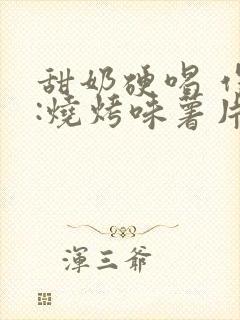 甜奶硬唱
:燒烤味薯片
渾三爺